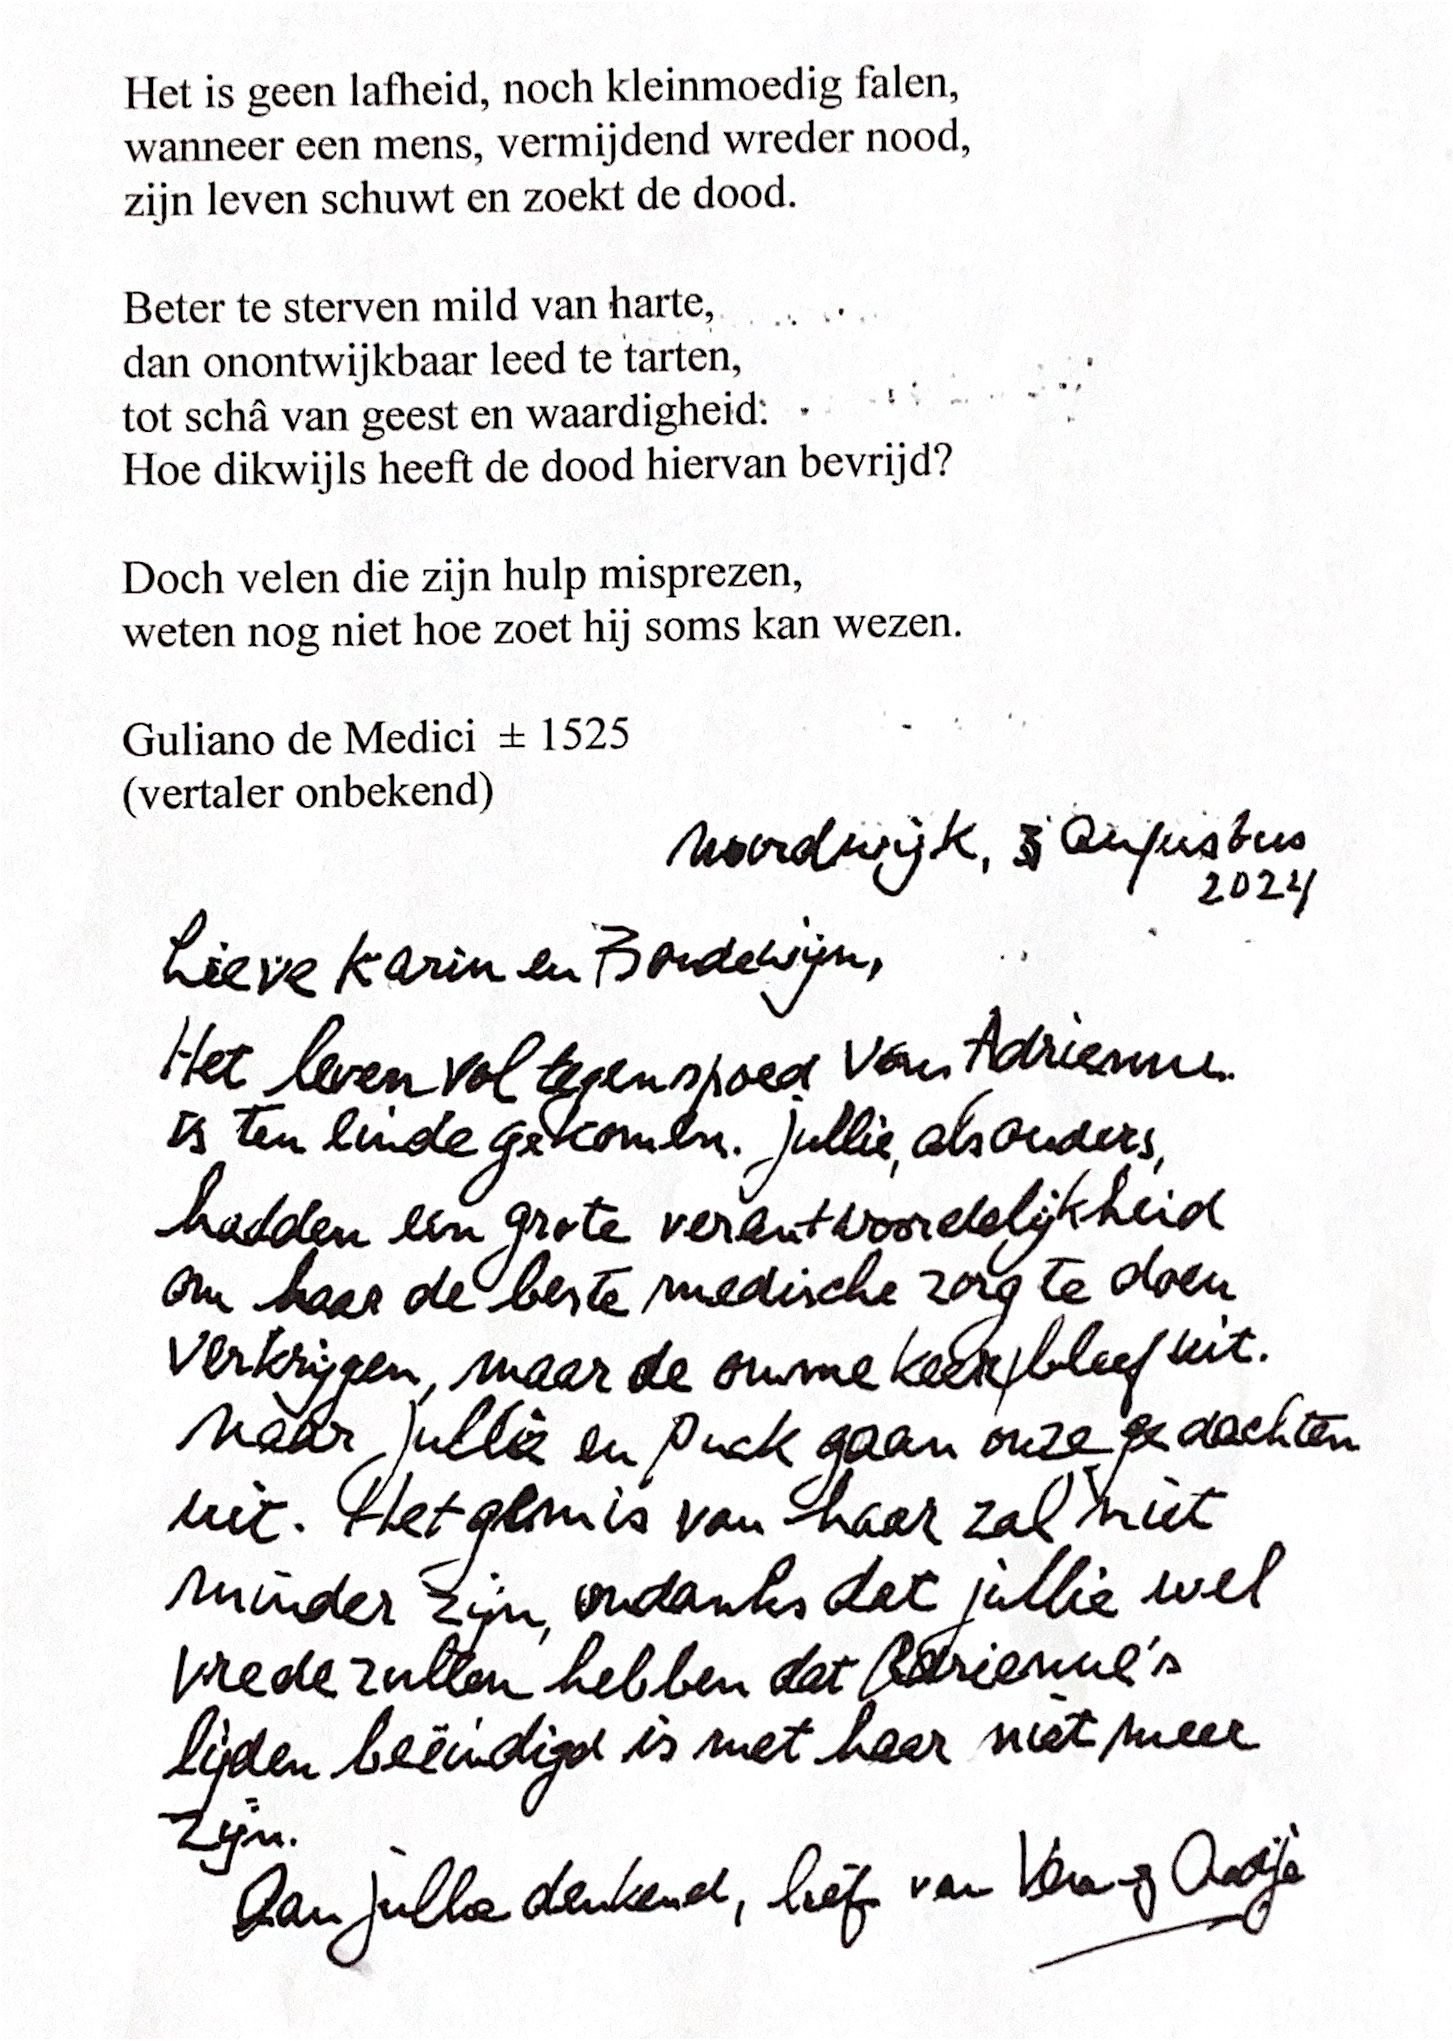 Het is geen lafheid, noch kleinmoedig falen,
wanneer een mens, vermijdend wreder nood,
zijn leven schuwt en zoekt de dood.
Beter te sterven mild van harte,
dan onontwijkbaar leed te tarten,
tot schâ van geest en waardigheid:
Hoe dikwijls heeft de dood hiervan bevrijd?
Doch velen die zijn hulp misprezen,
weten nog niet hoe zoet hij soms kan wezen.
Guliano de Medici ± 1525
(vertaler onbekend)
Noordwijk, Augustus
2024
Lieve Karin en Boudewijn,
Het leven vol tegenspoed van Adrienne
is ten einde gekomen. Jullie, als ouders,
hadden een grote verantwoordelijkheid
om haar de beste medische zorg te doen
verkrijgen, maar de omme keer bleef uit.
Naar jullie en Puck gaan onze gedachten
uit. Het gemis van haar zal niet
minder zijn, ondanks dat jullie wel
vrede zullen hebben dat Adrienne's
lijden beëindigd is met haar niet meer
zijn.
Aan jullie denkend, lief van